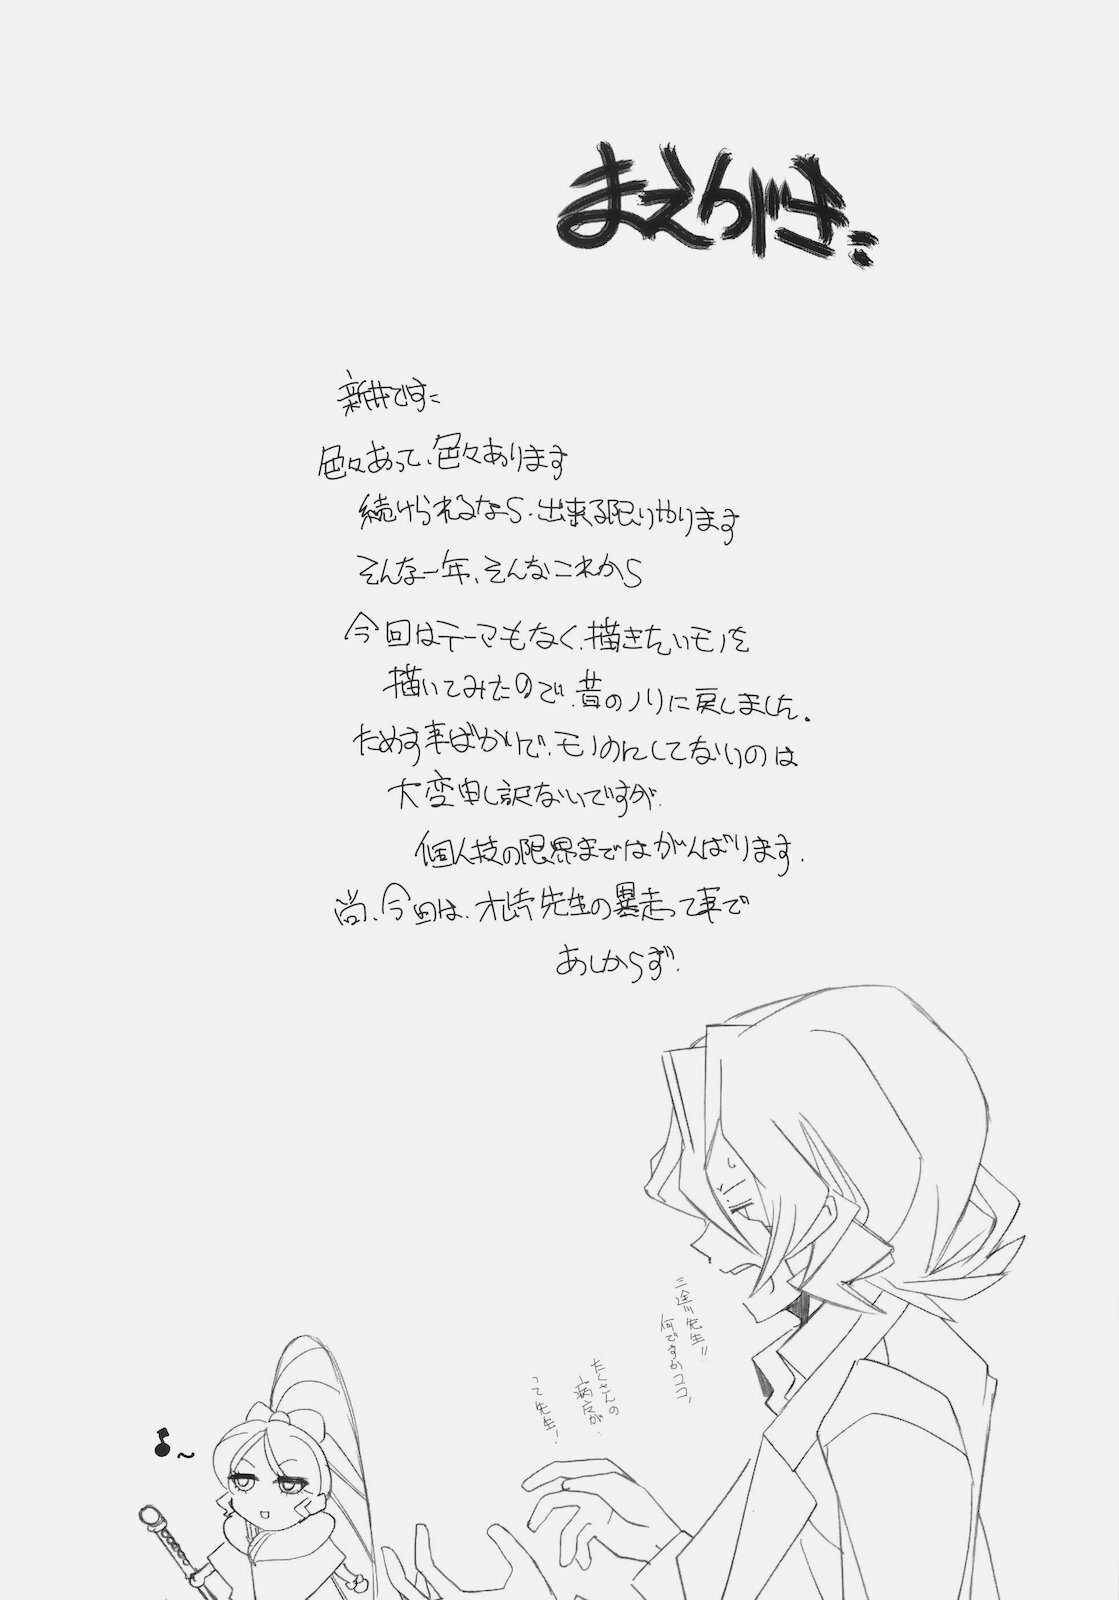 まえがき
新井です
色々あって、色々あります
続けられるなら、出来る限りやります
そんな一年、そんなこれから
今回はテーマもなく、描きたいモノを
描いてみたので、昔のノリに戻しました。
ためす事ばかりで、モノにしてないのは
大変申し訳ないですが、
個人技の限界まではがんばります。
尚、今回は、先生の暴走って事で
あしからず。
三途川先生!!
何ですかココ、
たくさんの
病床が、
って先生!